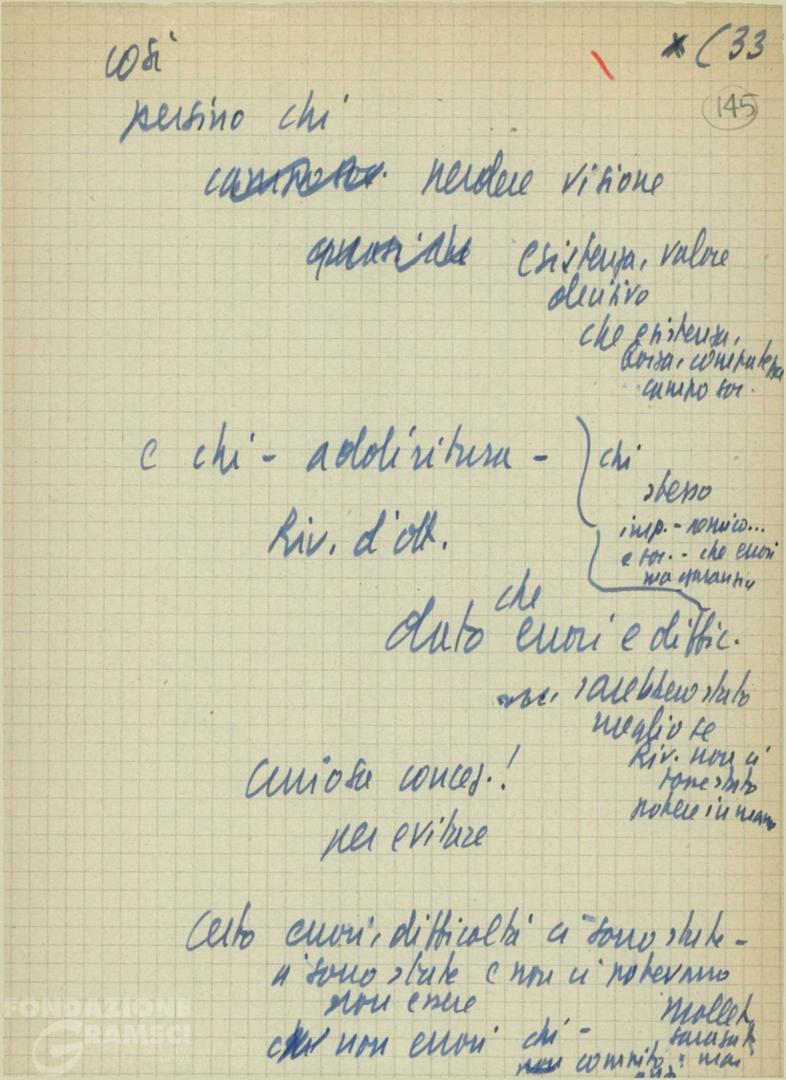 così
* ( 33
145
persino chi
perdere visione
esistenza, valore
decisivo
che esistenza,
forza, compattezza
campo soc.
e chi - addirittura -
chi
stesso
Riv. d'ott.
imp. - nemico...
e soc. - che errori
ma garanzia
che
dato errori e diffic.
sarebbero stato
meglio se
Riv. non ci
fosse stata
potere in mano
Curiosa concez.!
per evitare
Certo errori, difficoltà ci sono state -
ci sono state e non ci potevano
non essere
Mollet
non errori chi -
compito
mai
FONDAZIONE
GRAMSCI